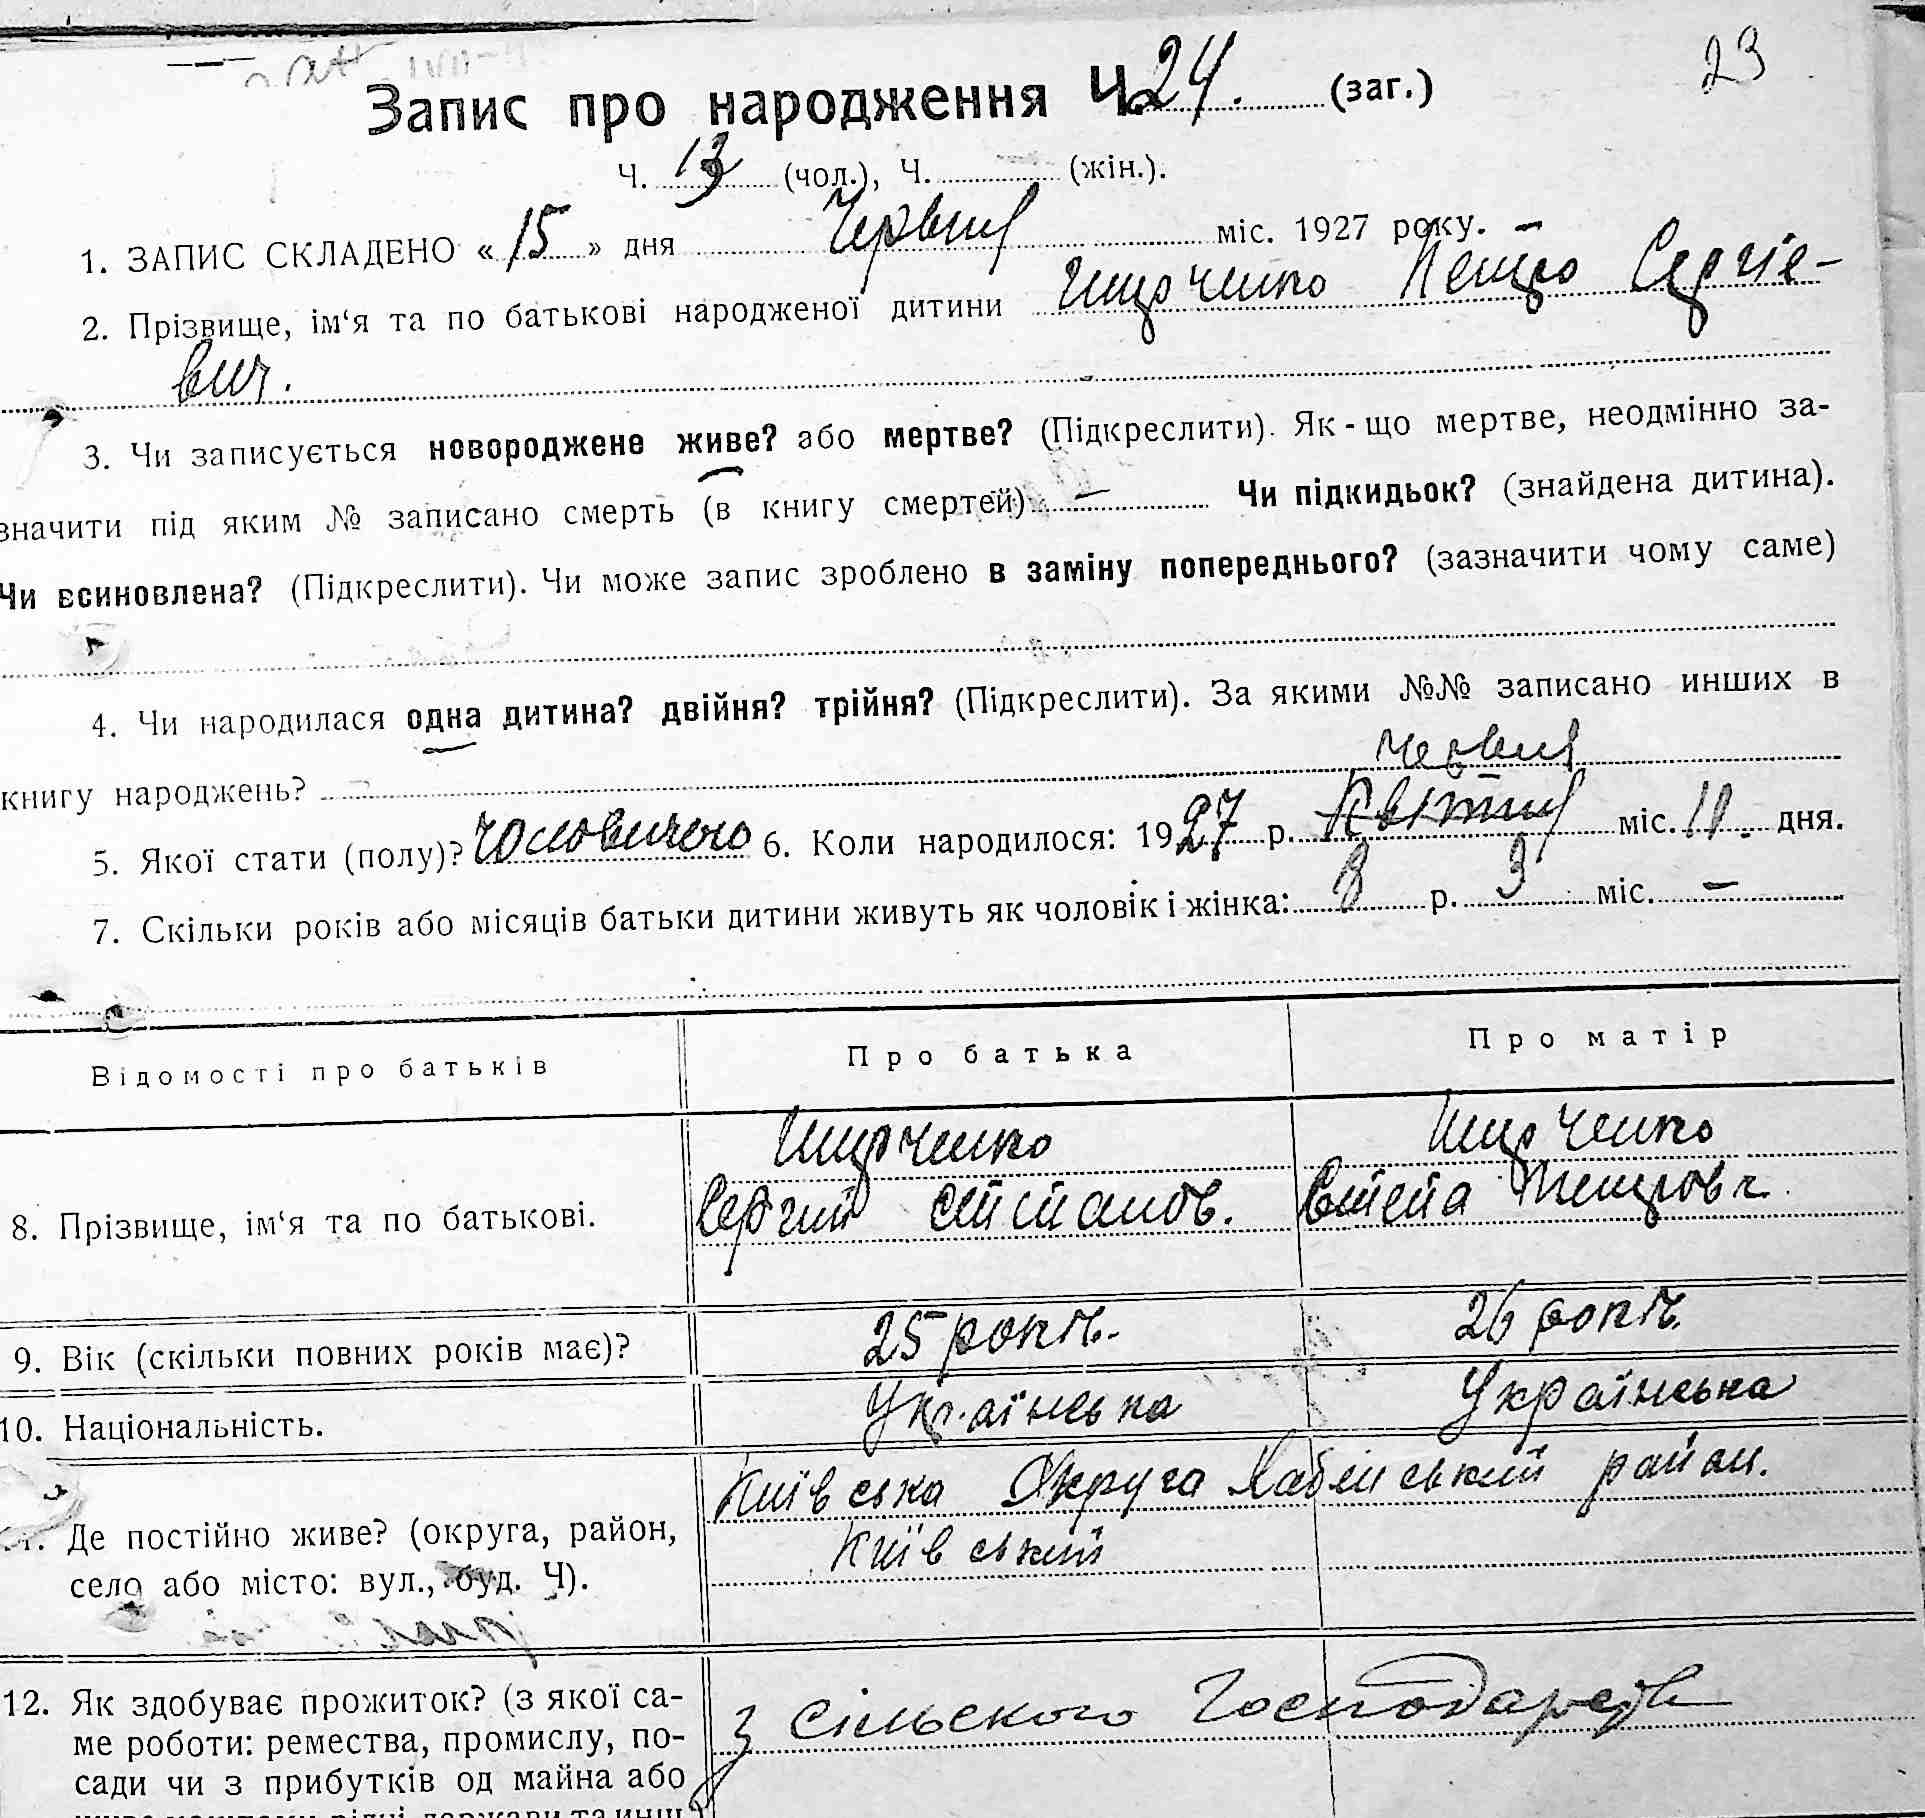 23
Запис про народження Ч. 24. (заг.)
Ч. 13 (чол.), Ч. (жін.).
1. ЗАПИС СКЛАДЕНО «15» дня Червня міс. 1927 року.
2. Прізвище, ім‘я та по батькові народженої дитини Ищрченко Петро Сергіе-
вич.
3. Чи записується новороджене живе? або мертве? (Підкреслити). Як-що мертве, неодмінно за-
значити під яким № записано смерть (в книгу смертей) — Чи підкидьок? (знайдена дитина).
Чи всиновлена? (Підкреслити). Чи може запис зроблено в заміну попереднього? (зазначити чому саме)
4. Чи народилася одна дитина? двійня? трійня? (Підкреслити). За якими №№ записано инших в
червня
книгу народжень? —
5. Якої стати (полу)? чоловичого 6. Коли народилося: 1927 р. Квітня міс. 11. дня.
7. Скільки років або місяців батьки дитини живуть як чоловік і жінка: 8 р. 3 міс. —
Відомості про батьків Про батька Про матір
8. Прізвище, ім‘я та по батькові.
Сергий Степанов. Петровн.
9. Вік (скільки повних років має)? 25 років. 26 років.
10. Національність. Українська Українська
Київська Округа Хабенський район.
Київський
11. Де постійно живе? (округа, район,
село або місто: вул., буд. Ч).
12. Як здобуває прожиток? (з якої са-
ме роботи: ремества, промислу, по-
сади чи з прибутків од майна або
з сільского Господарств